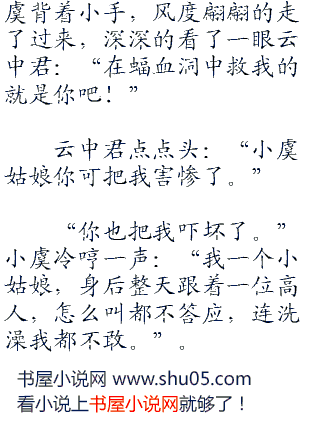 虞背着小手，风度翩翩的走
了过来，深深的看了一眼云
中君：“在蝠血洞中救我的
就是你吧！”
云中君点点头：“小虞
姑娘你可把我害惨了。”
“你也把我吓坏了。”
小虞冷哼一声：“我一个小
姑娘，身后整天跟着一位高
人，怎么叫都不答应，连洗
澡我都不敢。”。
书屋小说网 www.shu05.com
看小说上书屋小说网就够了！